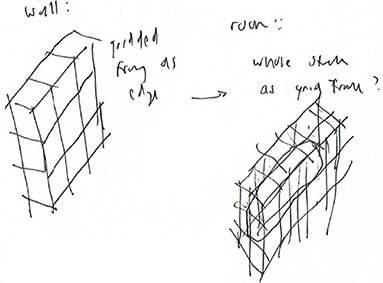 wall:
gridded
fring as
edge
room::
whole
as grid frame?